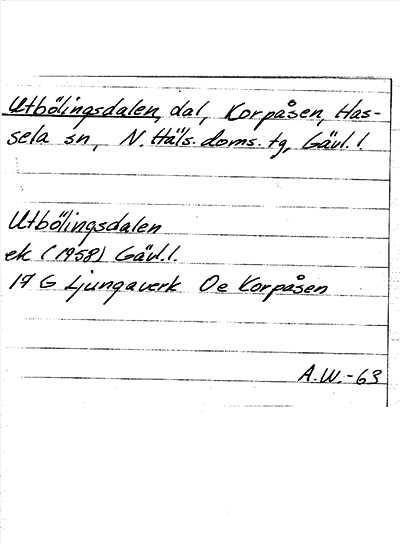 Utbölingsdalen, dal, Korpåsen, Has-
sela sn, N. Häls. doms. tg, Gävl. l.
Utbölingsdalen
ek (1958) Gävl. l.
17 G Ljungaverk Oe Korpåsen
A.W.-63